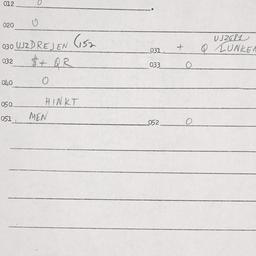 012 0
020 0
030 UJZDREJEN (152 031 + Q LUNKEN
032 $+ QR 033 0
040 0
050 HINKT
051 MEN 052 0